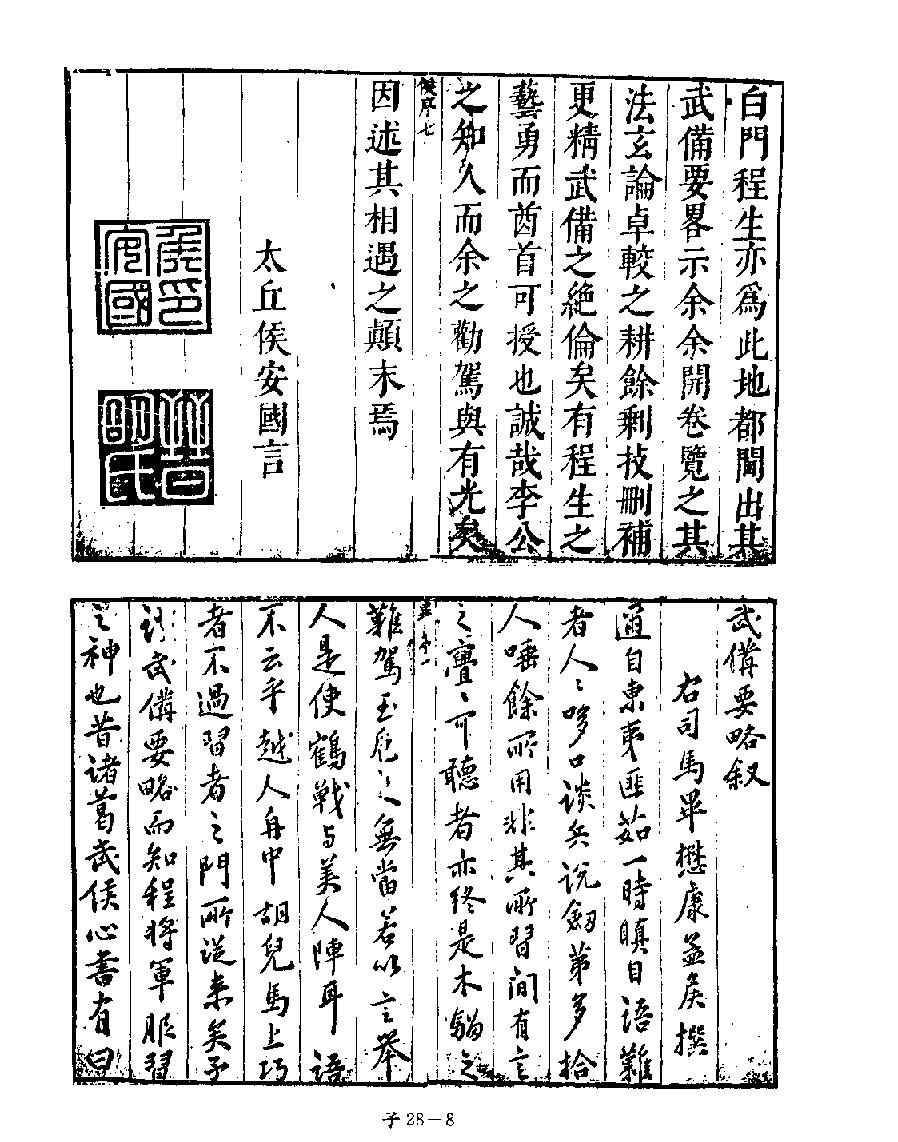 白門程生亦爲此地都閫出其
武備要畧示余余開卷覽之其
法玄論卓較之耕餘剩技刪補
更精武備之絶倫矣有程生之
藝勇而酋首可授也誠哉李公
之知人而余之勸駕與有光矣
侯序七
因述其相遇之顛末焉
太丘侯安國言
侯印安國
武備要略叙
右司馬畢懋康孟侯撰
逈自東事匪茹一時瞋目語難
者人〻哆口談兵说劒第多拾
人唾餘所用非其所習間有言
之亹〻可聽者亦终是木貓之
難駕玉卮之無當若以言舉
人是使鶴戰与美人陣耳語
不云乎越人舟中胡兒馬上巧
者不過習者之門所逆来矣予
武備要略而知程將軍服習
之神也昔诸葛武侯心書有曰
子28－8